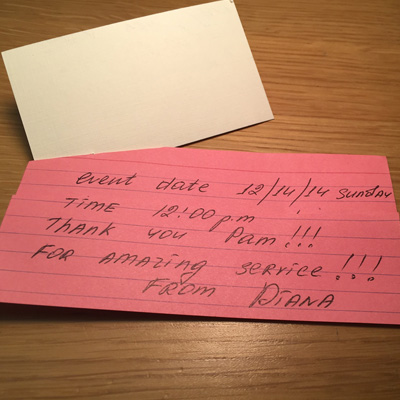 event date 12/14/14 SUNDAY
TIME 12:00 p.m
THANK YOU Pam!!!
FOR AMAZING SERVICE!!!
FROM DIANA